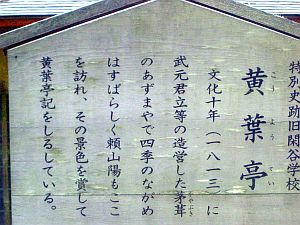 特別史跡旧閑谷学校
黄葉亭
こうようてい
文化十年（一八一三）に
武元君立等の造営した茅葺
かやぶき
のあずまやで四季のながめ
はすばらしく頼山陽もここ
を訪れ、その景色を賞して
黄葉亭記をしるしている。